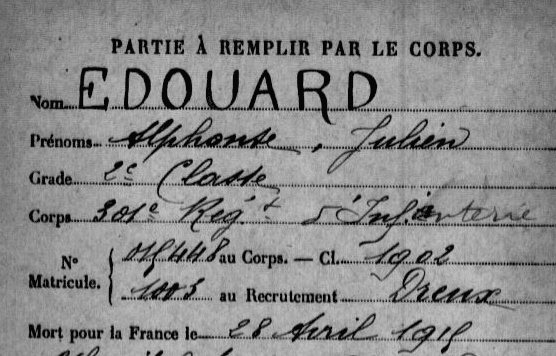 PARTIE À REMPLIR PAR LE CORPS.
Nom EDOUARD
Prénoms Alphonse, Julien
Grade 2e Classe
Corps 301e Régt d'Infanterie
N° Matricule. { 018448 au Corps. — Cl. 1902
1003 au Recrutement Dreux
Mort pour la France le 28 Avril 1915